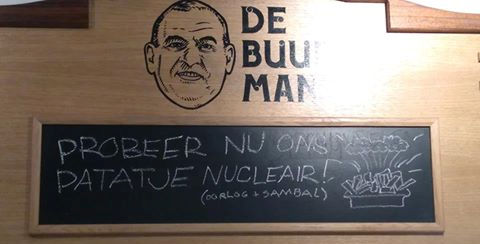 DE
BUURMAN
PROBEER NU ONS
PATATJE NUCLEAIR!
(OORLOG + SAMBAL)